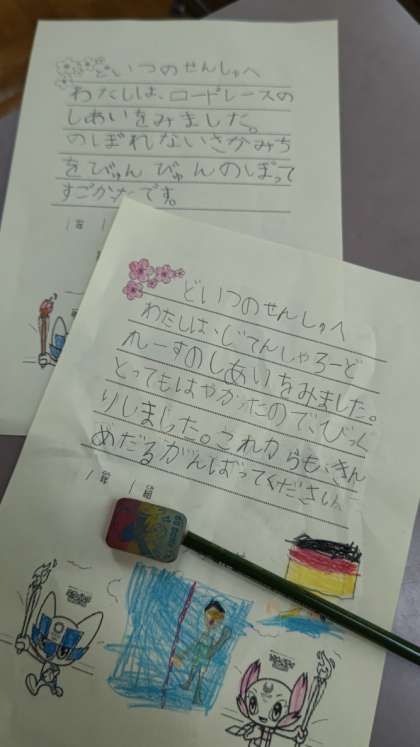 どいつのせんしゅへ
わたしは、ロードレースの
しあいをみました。
のぼれないさかみち
をびゅんびゅんのぼって
すごかたです。
1年 1
どいつのせんしゅへ
わたしは、じてんしゃろーど
れーすのしあいをみました。
とってもはやかったので、びっく
りしました。これからも、きん
めだるがんばってください。
1年 1組